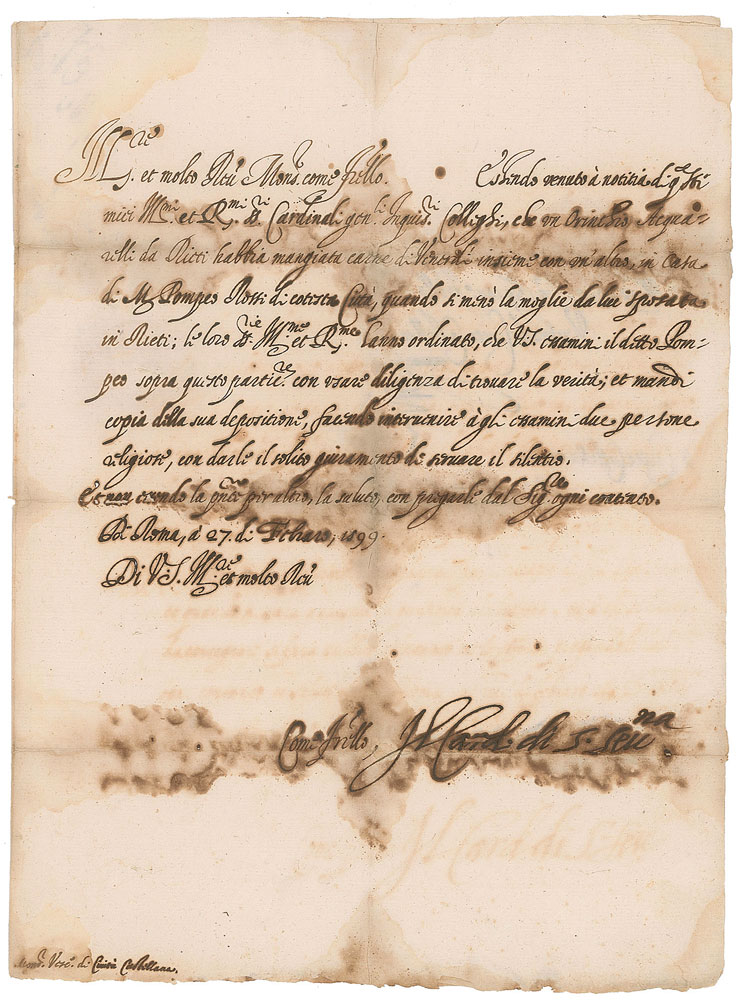 M.re
Ill. et molto R.do Mons. come fr̃ello. Essendo venuto à notitia di q.sti
miei Ill.mi et R.mi SS.ri Cardinali gen.li Inquis.ri Colleghi, che un Orinthio Acqua-
relli da Rieti habbia mangiata carne di Venerdì insieme con un'altro, in Casa
di M. Pompeo Rossi di cotesta Città, quando si menò la moglie da lui sposata
in Rieti; le loro SS.rie Ill.me et R.me hanno ordinato, che V.S. examini il detto Pom-
peo sopra questo partic.re con usare diligenza di trovare la verità; et mandi
copia della sua depositione, facendo intervenire à gli examini due persone
religiose, con darle il solito giuramento de servare il silentio.
Et non essendo la p̃nte per altro, la saluto, con pregarle dal Sig.re ogni contento.
Di Roma, à 27. di Febraro, 1599.
Di V.S. M.re et molto R.da
Come fr̃ello, Il Card. di S. Sev.na
Mons. Vesc.o di Cività Castellana.